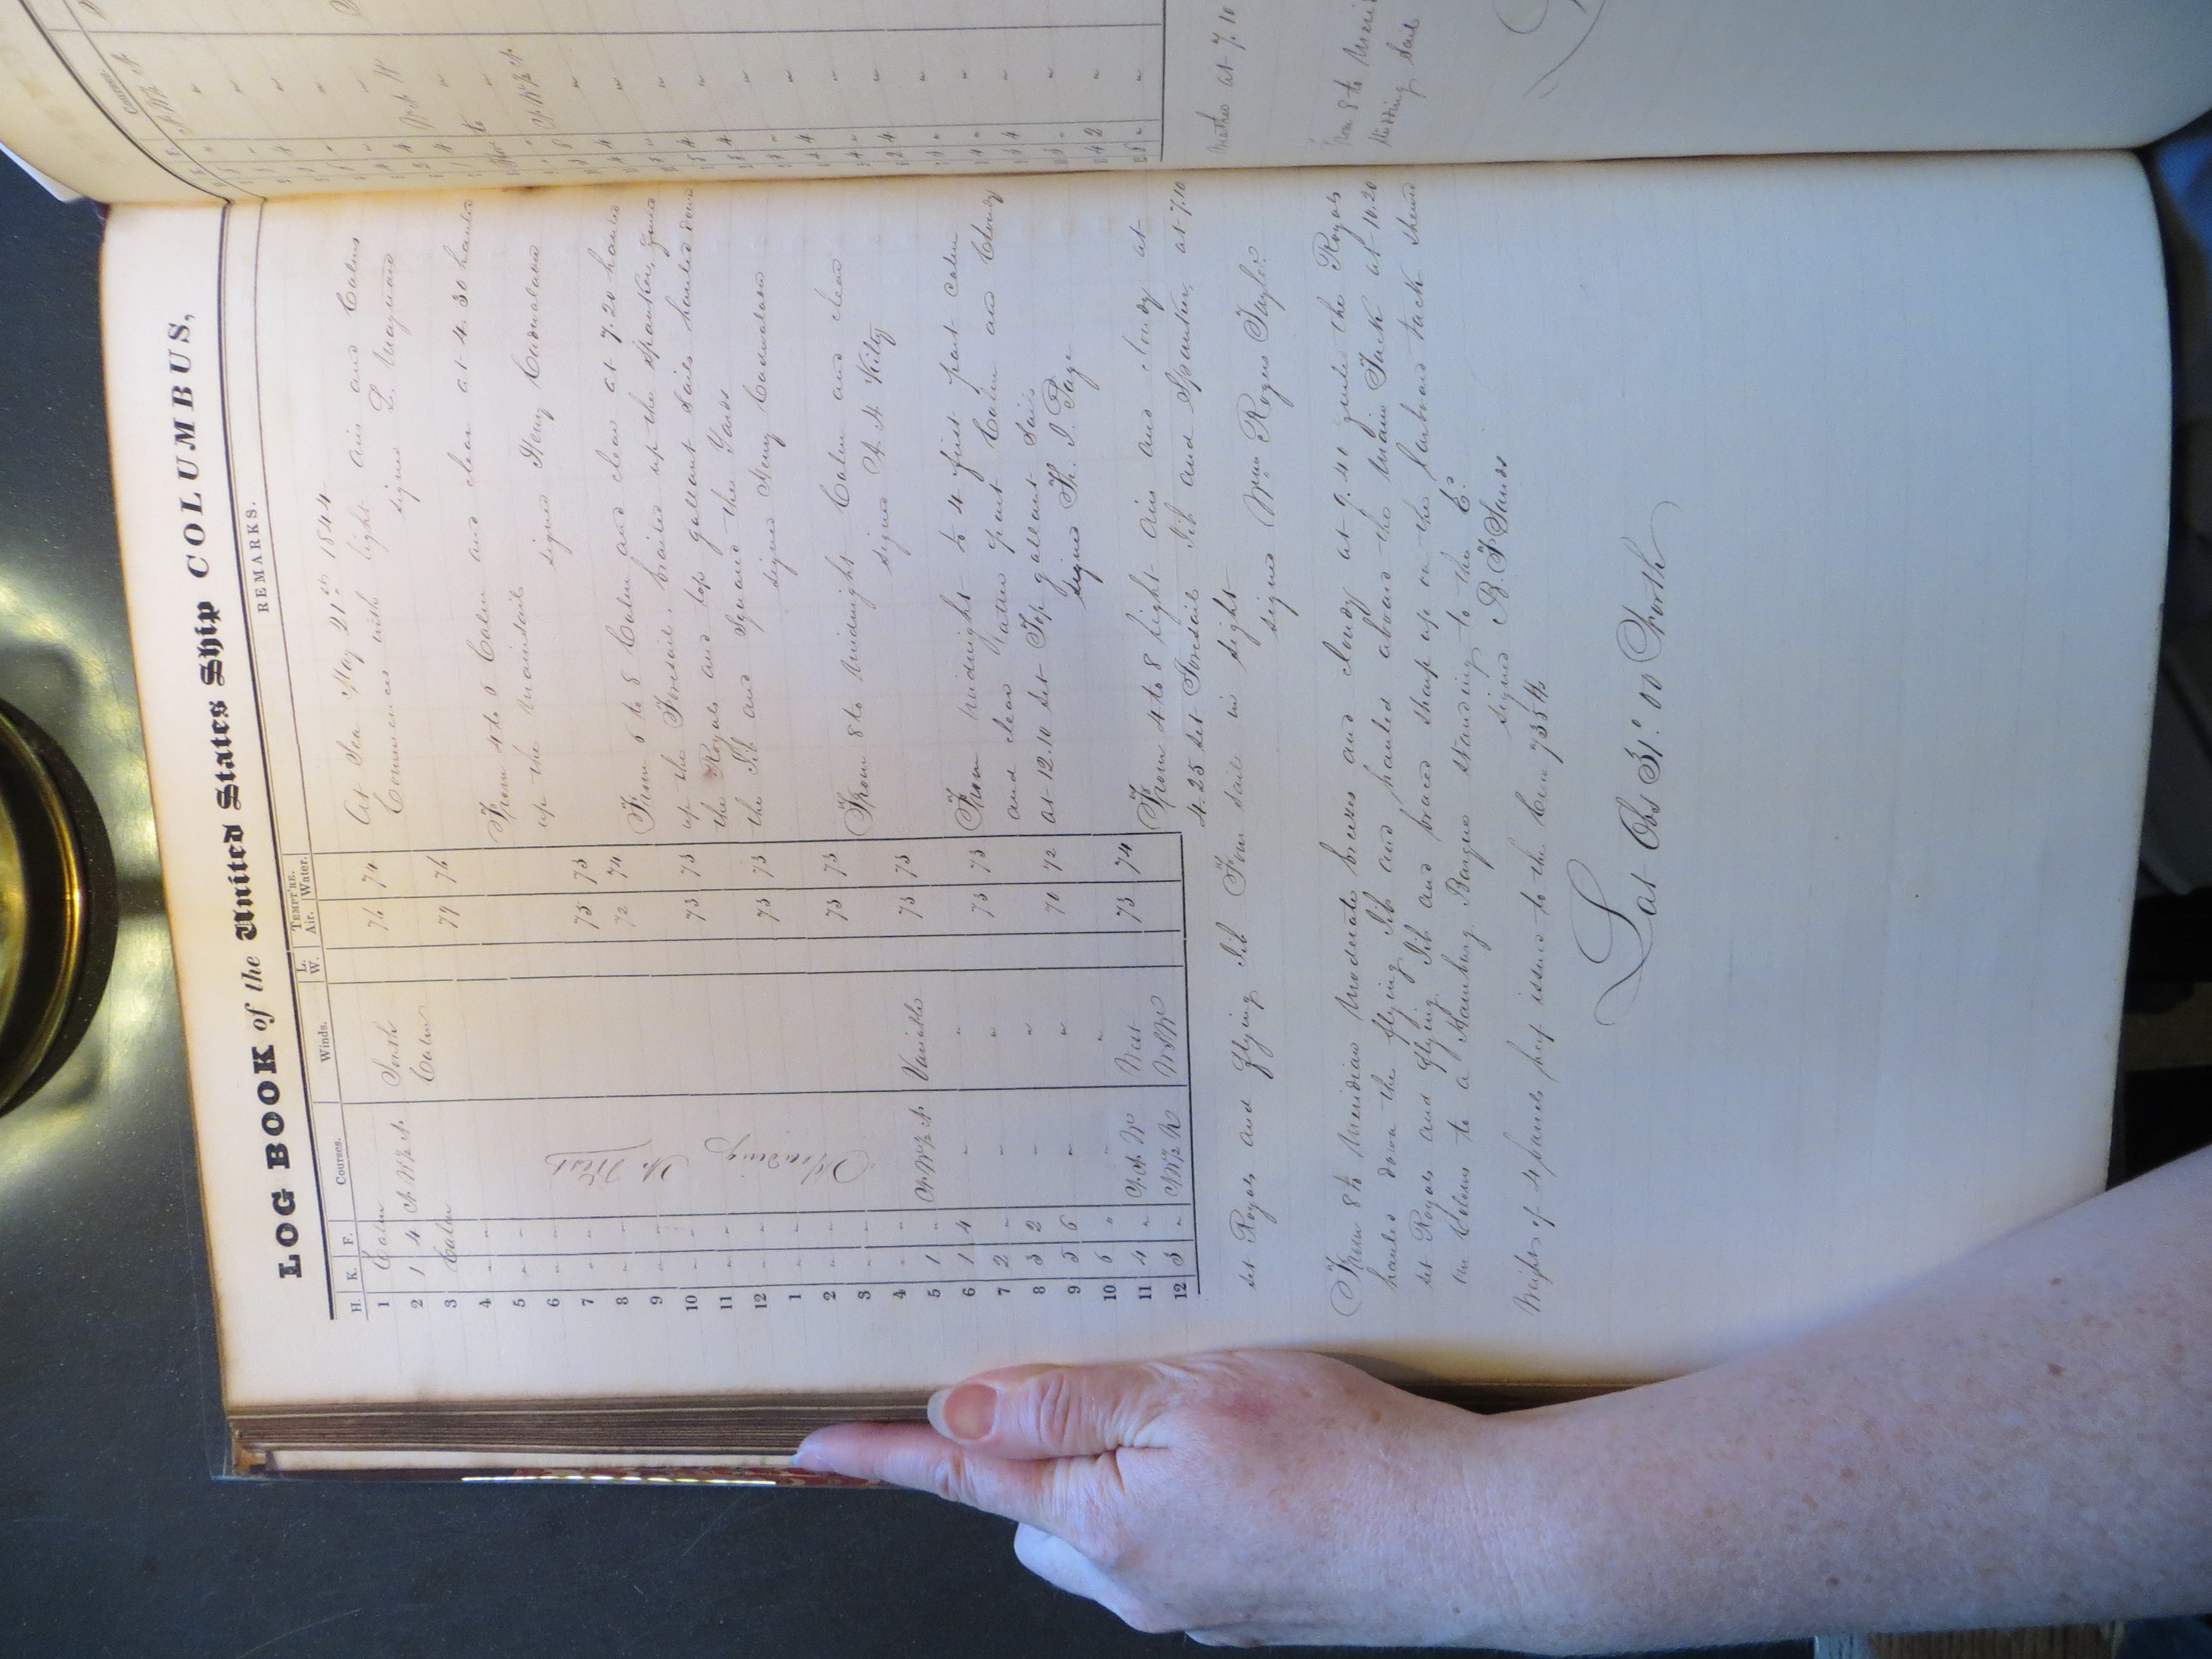 LOG BOOK of the United States Ship COLUMBUS,
H. K. F. Courses. Winds. L. W. TEMPT'RE. Air. Water. REMARKS.
1 Calm South 76 74
2 1 4 Calm
3 Calm 79 76
4 " "
5 " "
6 " "
7 " " 75 73
8 " " 72 74
9 " "
10 " " 73 73
11 " "
12 " " 73 73
1 " "
2 " " 73 73
3 " "
4 " " 73 73
5 1 " Variable
6 1 4 " " 73 73
7 2 " " "
8 3 2 " " 70 72
9 5 6 " "
10 6 " " "
11 4 " West 73 74
12 3 "
Heading
At Sea May 21st 1844
Commences with light airs and Calms
signed L. Maynard
From 4 to 6 Calm and clear at 4.30 hauled
up the Mainsail
signed Henry Cadwalader
From 6 to 8 Calm and clear at 7.20 hauled
up the Foresail, brailed up the Spanker, furled
the Royals and top gallant sails hauled down
the Jib and squared the Yards
signed Henry Cadwalader
From 8 to Midnight Calm and clear
signed A. H. Kilty
From Midnight to 4 first part Calm
and clear latter part Calm and Cloudy
at 12.10 set Top gallant Sails
signed Th. J. Page
From 4 to 8 light airs and cloudy at
4.25 set Foresail Jib and Spanker, at 7.10
set Royals and flying Jib Four sails in sight
signed Wm Rogers Taylor
From 8 to Meridian Moderate breezes and cloudy at 9.40 furled the Royals
hauled down the flying Jib and hauled aboard the Main Tack at 10.20
set Royals and flying Jib and braced sharp up on the larboard tack shewed
our Colors to a Hamburg Barque standing to the Ed
signed B. F Sands
Weight of 4 barrels beef issued to the Crew 735 lbs
Lat Obs 31° 00 North
Courses
Weather at 7.10
From 8 to Merid
Studding Sails